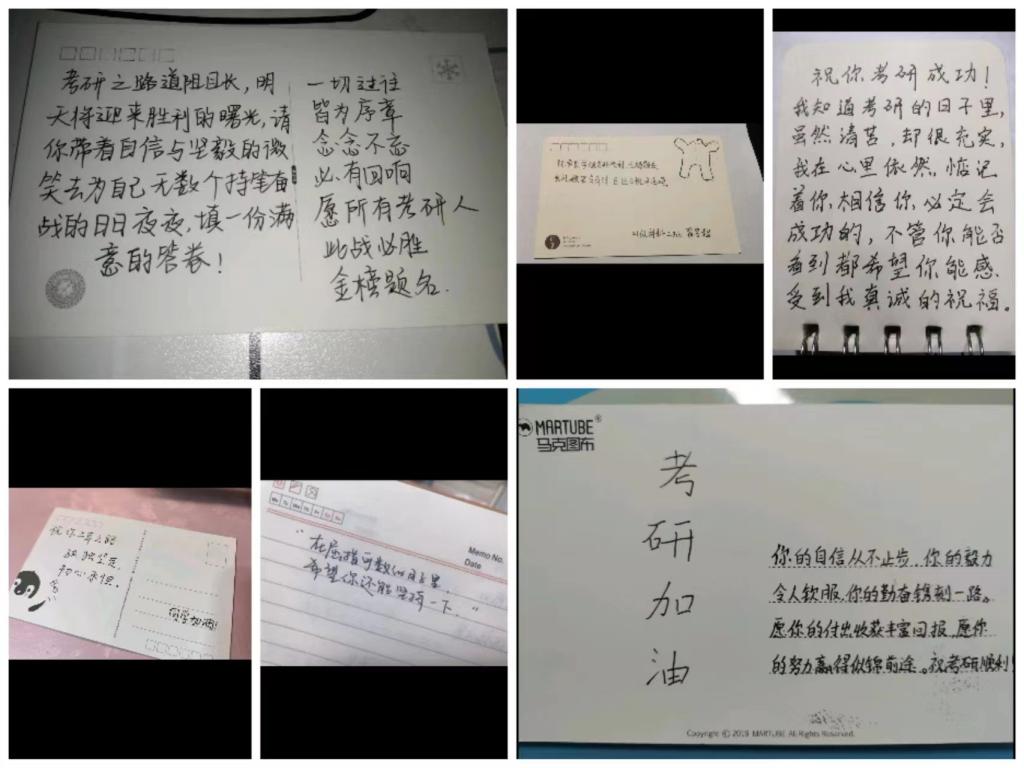 考研之路道阻且长，明
天将迎来胜利的曙光，请
你带着自信与坚毅的微
笑去为自己无数个持笔奋
战的日日夜夜，填一份满
意的答卷！
一切过往
皆为序章
念念不忘
必有回响
愿所有考研人
此战必胜
金榜题名.
祝你考研成功！
我知道考研的日子里，
虽然清苦，却很充实，
我在心里依然，惦记
着你，相信你，必定会
成功的，不管你能否
看到都希望你能感
受到我真诚的祝福。
祝你
初心永恒.
同学加油!
Memo No.
Date
"在屈指可数的日子里，
希望你还能坚持一下。"
MARTUBE®
马克图布
考
研
加
油
你的自信从不止步，你的毅力
令人钦服，你的勤奋镌刻一路。
愿你的付出收获丰富回报，愿你
的努力赢得似锦前途。祝考研顺利!
Copyright © 2019 MARTUBE All Rights Reserved.